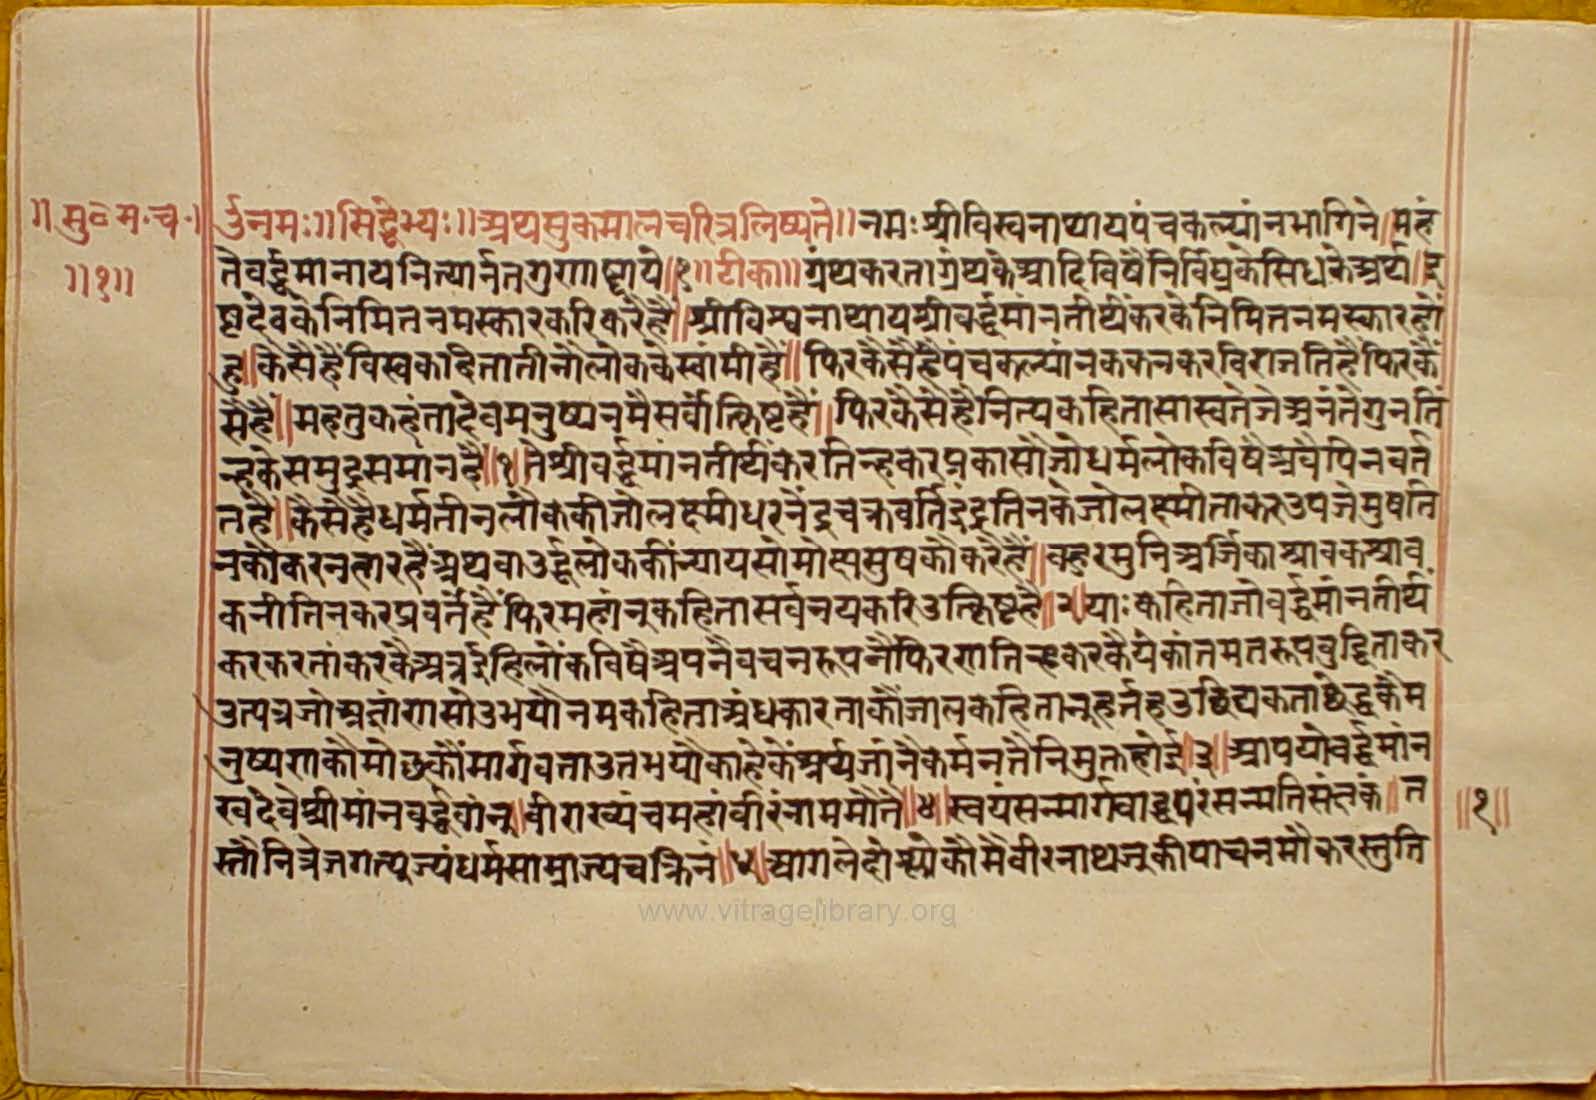 ॥ सु॰ म॰ च॰॥
॥१॥
र्उनमः॥सिद्धेभ्यः॥अथसुकमालचरित्रलिष्यते॥नमःश्रीविस्वनाथायपंचकल्यांनभागिने॥महं
तेवर्द्धमानायनित्यानंतगुणाष्टाये॥१॥टीका॥ग्रंथकरताग्रंथकेआदिविषैनिर्विघ्नकेसिधकेअर्थ॥इ
ष्टदेवकेनिमितनमस्कारकरिकरैहैं॥श्रीविश्वनाथायश्रीवर्द्धमांनतीर्थंकरकेनिमितनमस्कारहों
हु॥कैसैहैंविस्वकहितातीनौलोककेस्वांमीहैं॥फिरकैसैहैपंचकल्यांनककनकरविराजतिहैफिरकै
सैहैं॥महतुकहंतादेवमनुष्यनमैसर्वोत्क्रिष्टहैं॥फिरकैसैहैनित्यकहितासास्वतेजेअनंतेगुनति
न्हकेसमुद्रसमांनहै॥१॥तेश्रीवर्द्धमांनतीर्थंकरतिन्हकरप्रकासौजोधर्मलोकविषैअवैपिनवर्त
तहै॥कैसैहैधर्मतीनलोककीजोलक्ष्मीधरनेंद्रचक्रवर्तिइंद्रतिनकेजोलक्ष्मीताकरउपजेसुषति
नकौकरनहारहैंअथवाउर्द्धलोककींन्यायसोमोक्षसुषकौकरैहैं॥बहुरमुनिअर्जिकाश्रावकश्राव
कनीतिनकरप्रवर्तेहैंफिरमहांनुकहितासर्वनयकरिउत्क्रिष्टहै॥२॥याःकहिताजोवर्द्धमांनतीर्थं
करकरतांकरकैअत्रइहिलोकविषैअपनैवचनरूपनौफिरणतिन्हकरकैयेकांतमतरूपबुद्धिताकर
उत्पन्नजोअतांणसोउभयौनमकहिताअंधकारताकौंजालकहितानुहर्नह
नुष्यणकौमोछकौंमार्गवताउतभयौकाहेकेंअर्थजांनैकर्मनतैनिमुक्तहोई॥३॥आपयोवर्द्धमांन
स्वदेवेश्रीमांनवर्द्धवांनु॥वीराख्यंचमहांवीरंनाममौतै॥४॥स्वयंसन्मार्गवाद्वपरंसन्मतिसंतकं॥त
स्तौनित्रेजगत्पूज्यंधर्मसाम्राज्यचक्रिनं॥५॥आगलेदोश्लोकौमैवीरनाथजुकीपाचनमौकरस्तुति
॥१॥
www.vitragelibrary.org